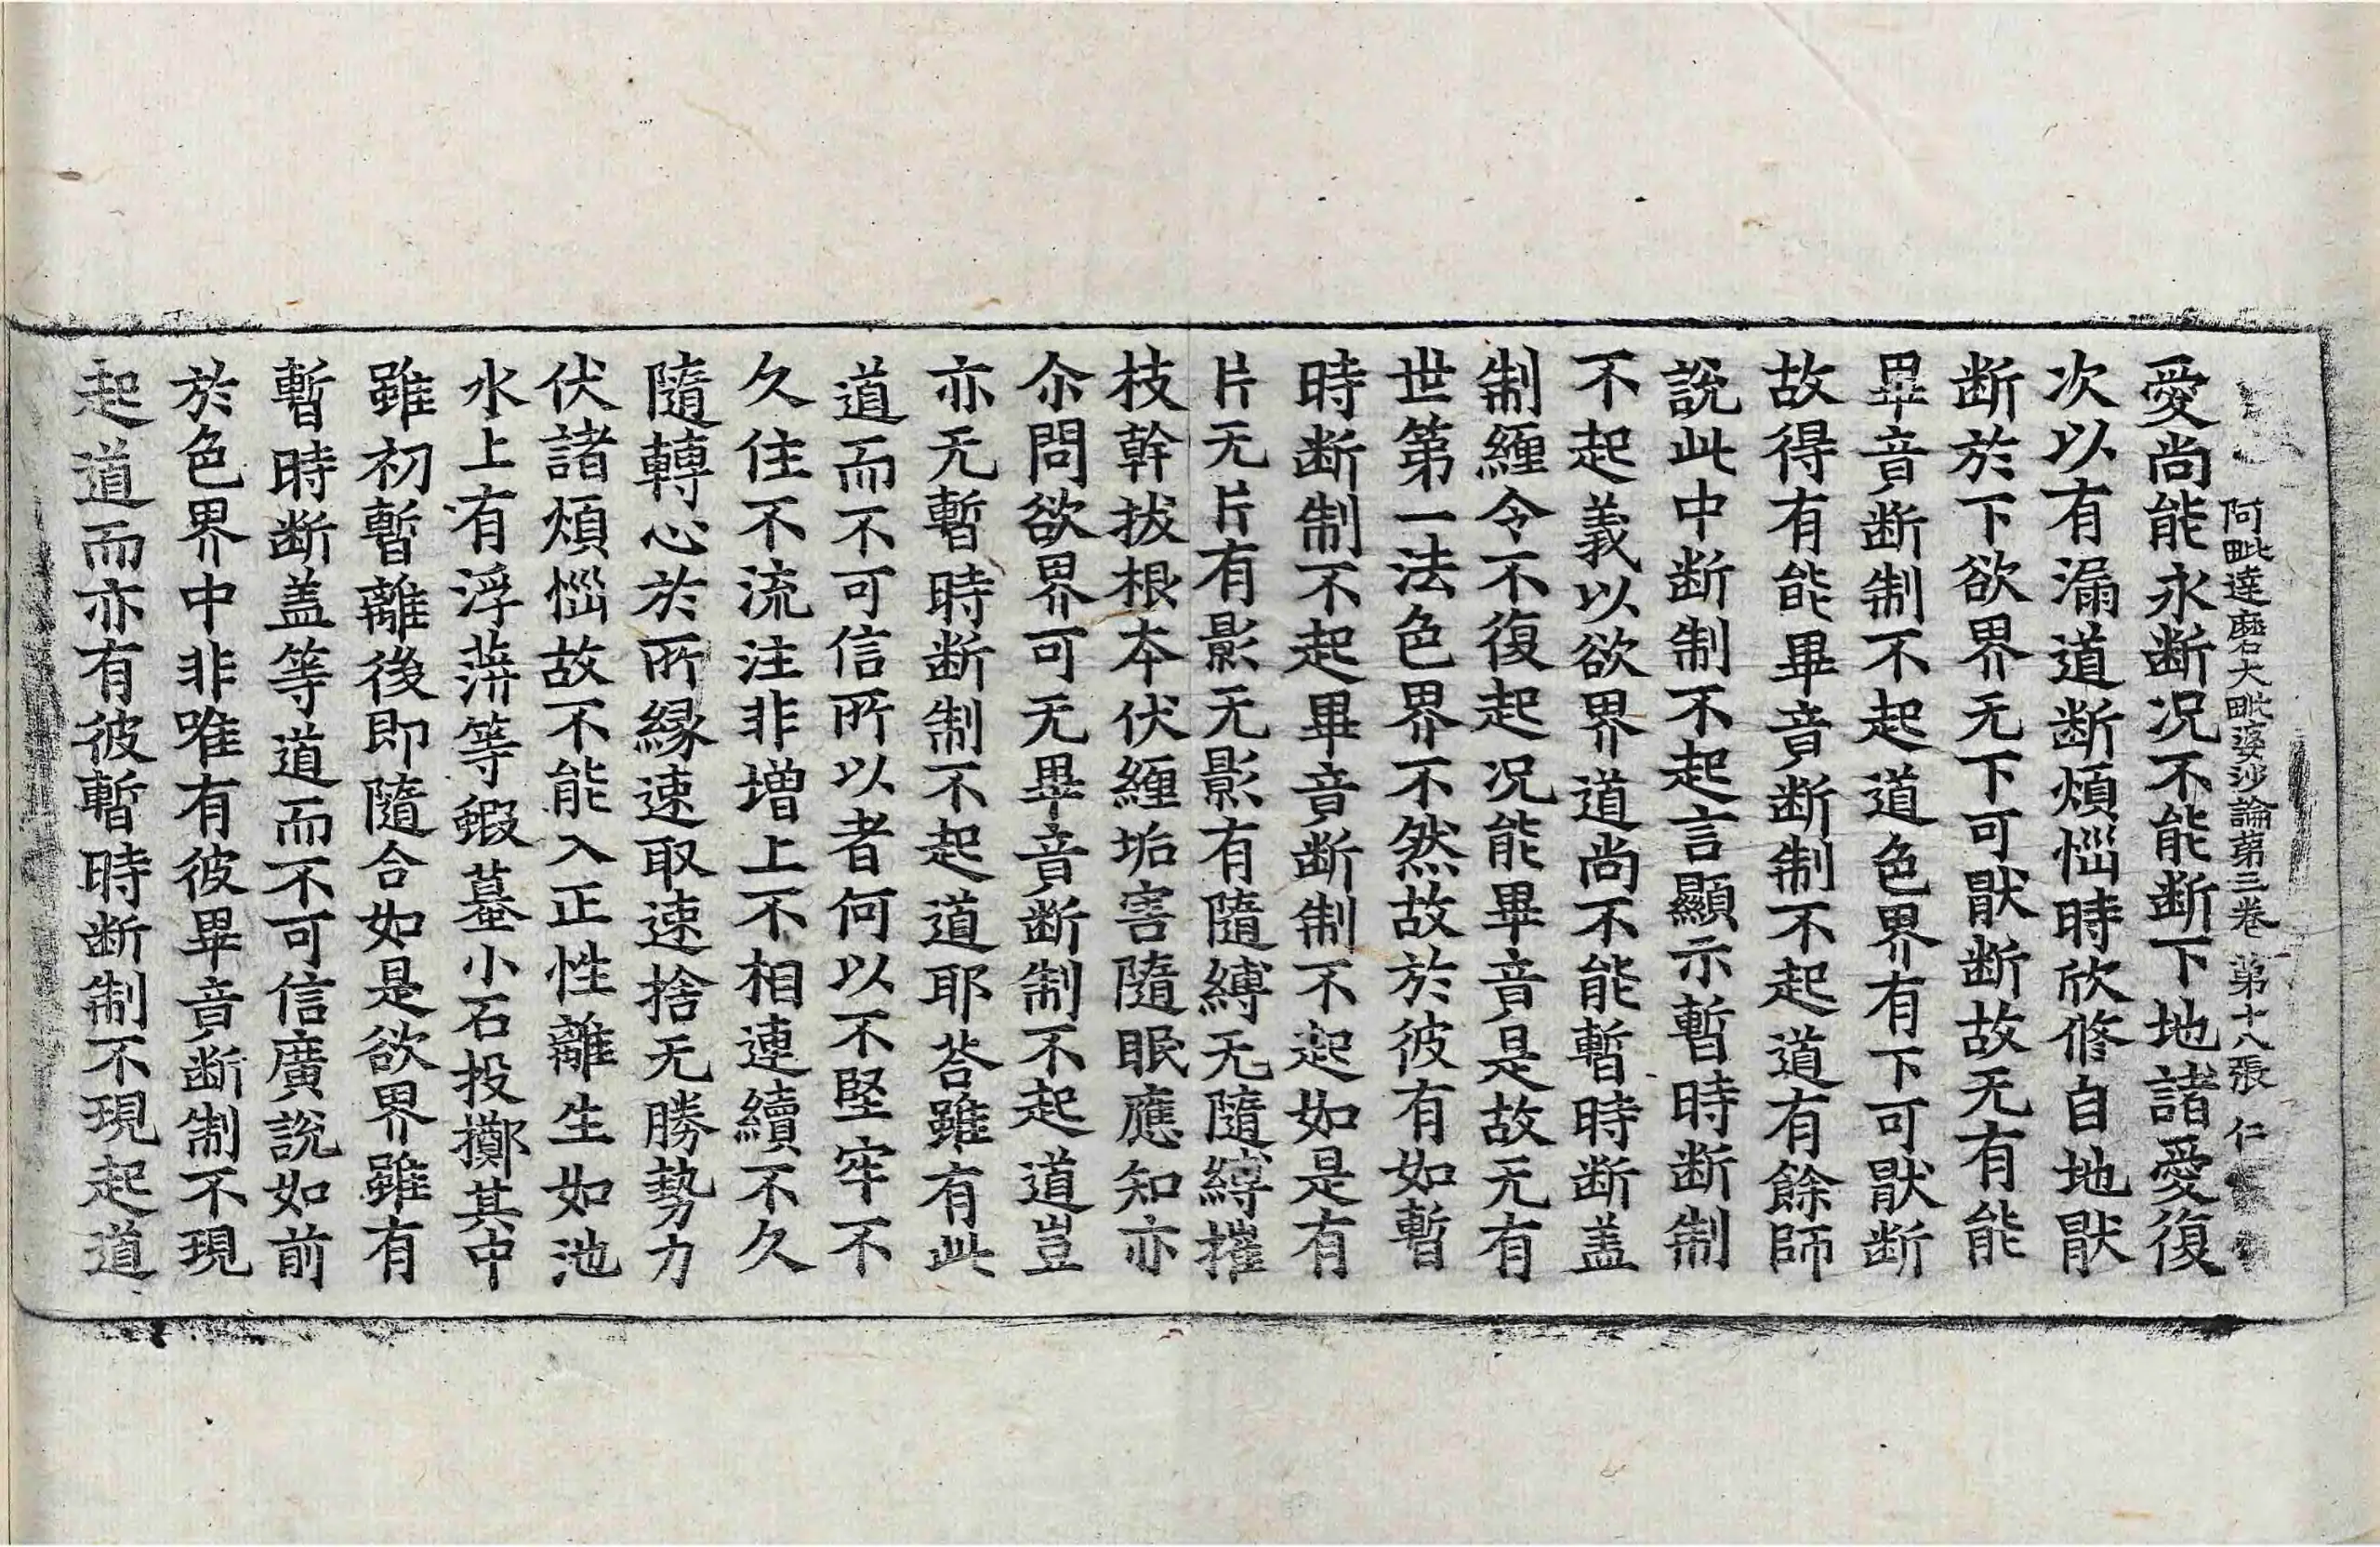 阿毗達磨大毗婆沙論第三卷 第十八張 仁
愛尚能永断况不能断下地諸愛復
次以有漏道断煩惱時欣修自地猒
断於下欲界无下可猒断故无有能
畢竟断制不起道色界有下可猒断
故得有能畢竟断制不起道有餘師
說此中断制不起言顯示暫時断制
不起義以欲界道尚不能暫時断盖
制纏令不復起况能畢竟是故无有
世第一法色界不然故於彼有如暫
時断制不起畢竟断制不起如是有
片无片有影无影有隨縛无隨縛摧
枝幹拔根本伏纏垢害隨眠應知亦
尒問欲界可无畢竟断制不起道豈
亦无暫時断制不起道耶荅雖有此
道而不可信所以者何以不堅牢不
久住不流注非增上不相連續不久
隨轉心於所緣速取速捨无勝勢力
伏諸煩惱故不能入正性離生如池
水上有浮蓱等蝦蟇小石投擲其中
雖初暫離後即隨合如是欲界雖有
暫時断盖等道而不可信廣說如前
於色界中非唯有彼畢竟断制不現
起道而亦有彼暫時断制不現起道